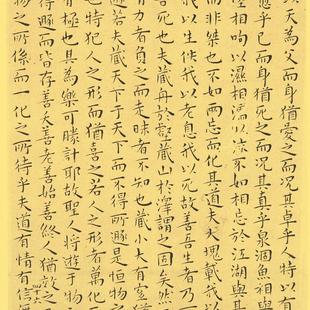 以天為父而身猶愛之而況其卓乎人特以有
愈乎己而身猶死之而況其真乎泉涸魚相與
陸相呴以濕相濡以沫不如相忘於江湖與其
而非桀也不如兩忘而化其道夫大塊載我以
我以生佚我以老息我以死故善吾生者乃
吾死也夫藏舟於壑藏山於澤謂之固矣然
有力者負之而走昧者不知也藏小大有宜猶
遯若夫藏天下於天下而不得所遯是恆物之
也特犯人之形而猶喜之若人之形者萬化
有極也其為樂可勝計耶故聖人將遊於物
得遯而皆存善夭善老善始善終人猶效之
四十六
物之所係而一化之所待乎夫道有情有信無